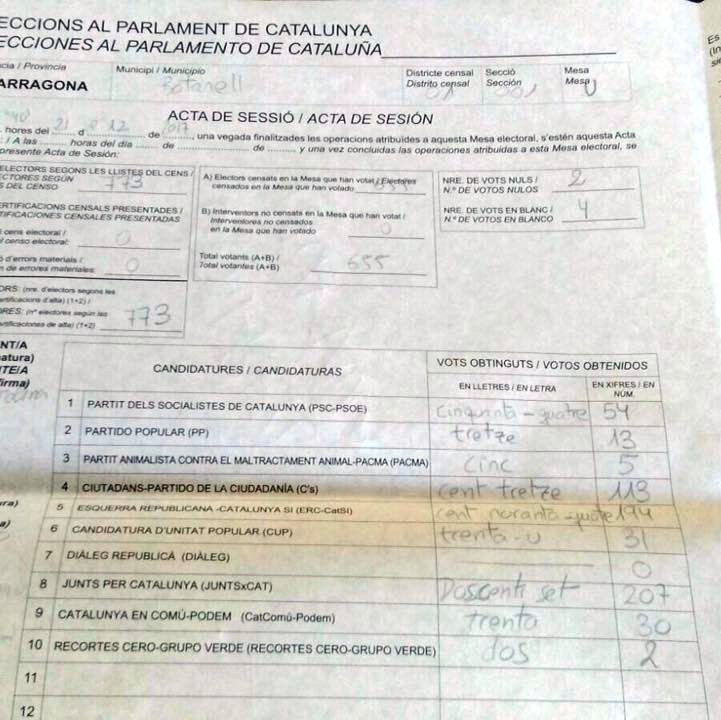 ECCIONS AL PARLAMENT DE CATALUNYA
ECCIONES AL PARLAMENTO DE CATALUÑA
cia / Provincia
Municipi / Municipio
Districte censal
Distrito censal
Secció
Sección
Mesa
Mesa
ARRAGONA
01
001
U
ACTA DE SESSIÓ / ACTA DE SESIÓN
hores del 21 d 12 de 2017, una vegada finalitzades les operacions atribuïdes a aquesta Mesa electoral, s'estén aquesta Acta
: / A las horas del día de de y una vez concluidas las operaciones atribuidas a esta Mesa electoral, se
presente Acta de Sesión:
ELECTORS SEGONS LES LLISTES DEL CENS /
ECTORES SEGÚN
S DEL CENSO
773
RTIFICACIONS CENSALS PRESENTADES /
TIFICACIONES CENSALES PRESENTADAS
l cens electoral /
l censo electoral:
0
d'errors materials /
n de errores materiales:
0
ORS: (nre. d'electors segons les
ertificacions d'alta) (1+2) /
RES: (nº electores según las
ertificaciones de alta) (1+2)
773
A) Electors censats en la Mesa que han votat / Electores
censados en la Mesa que han votado
B) Interventors no censats en la Mesa que han votat /
Interventores no censados
en la Mesa que han votado
0
Total votants (A+B) /
Total votantes (A+B)
655
NRE. DE VOTS NULS /
N.º DE VOTOS NULOS
2
NRE. DE VOTS EN BLANC /
N.º DE VOTOS EN BLANCO
4
NT/A
atura)
TE/A
irma)
CANDIDATURES / CANDIDATURAS
VOTS OBTINGUTS / VOTOS OBTENIDOS
EN LLETRES / EN LETRA
EN XIFRES / EN
NUM.
1 PARTIT DELS SOCIALISTES DE CATALUNYA (PSC-PSOE) Cinquanta-quatre 54
2 PARTIDO POPULAR (PP) tretze 13
3 PARTIT ANIMALISTA CONTRA EL MALTRACTAMENT ANIMAL-PACMA (PACMA) Cinc 5
4 CIUTADANS-PARTIDO DE LA CIUDADANÍA (C's) cent tretze 113
5 ESQUERRA REPUBLICANA -CATALUNYA SÍ (ERC-CatSí) cent noranta-quatre 194
6 CANDIDATURA D'UNITAT POPULAR (CUP) trenta-u 31
7 DIÀLEG REPUBLICÀ (DIÀLEG) 0
8 JUNTS PER CATALUNYA (JUNTSxCAT) Doscents set 207
9 CATALUNYA EN COMÚ-PODEM (CatComú-Podem) trenta 30
10 RECORTES CERO-GRUPO VERDE (RECORTES CERO-GRUPO VERDE) dos 2
11
12